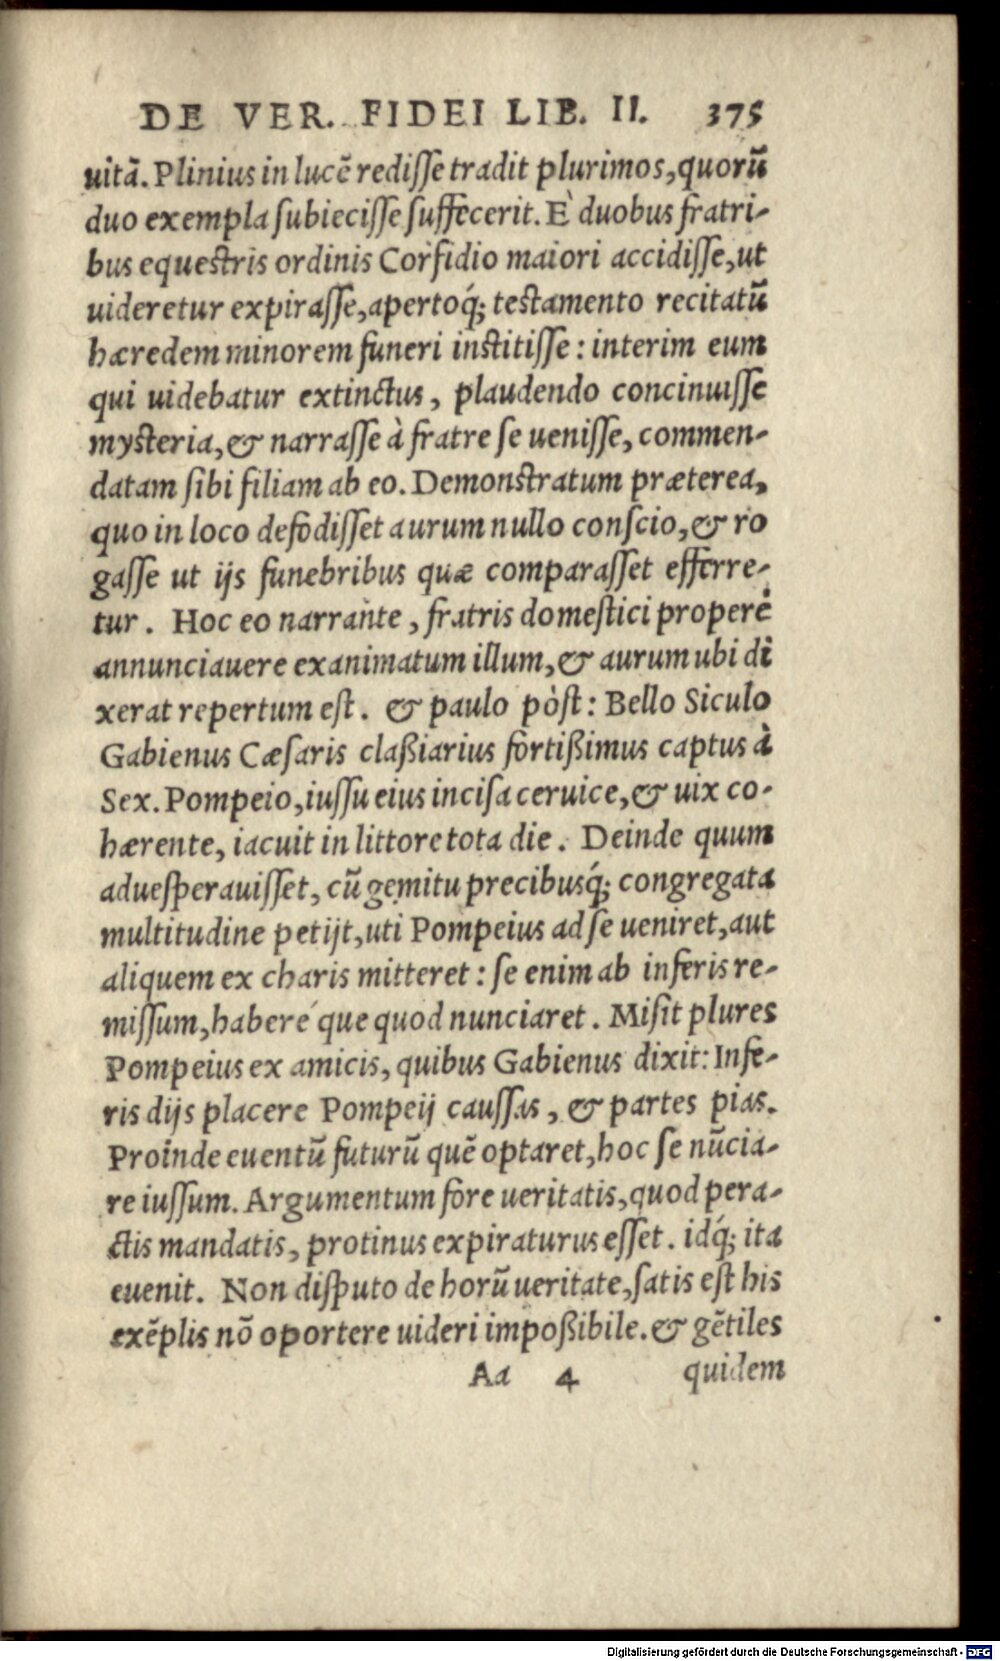 DE VER. FIDEI LIB. II. 375
uitā. Plinius in lucē rediſſe tradit plurimos, quorū
duo exempla ſubieciſſe ſuffecerit. È duobus fratri-
bus equeſtris ordinis Corfidio maiori accidiſſe, ut
uideretur expiraſſe, apertoq́; teſtamento recitatū
hæredem minorem funeri inſtitiſſe: interim eum
qui uidebatur extinctus, plaudendo concinuiſſe
myſteria, & narraſſe à fratre ſe ueniſſe, commen-
datam ſibi filiam ab eo. Demonſtratum præterea,
quo in loco defodiſſet aurum nullo conſcio, & ro
gaſſe ut ijs funebribus quæ comparaſſet efferre-
tur. Hoc eo narrante, fratris domeſtici properè
annunciauere exanimatum illum, & aurum ubi di
xerat repertum eſt. & paulo pòſt: Bello Siculo
Gabienus Cæſaris claßiarius fortißimus captus à
Sex. Pompeio, iuſſu eius inciſa ceruice, & uix co-
hærente, iacuit in littore tota die. Deinde quum
aduesperauiſſet, cū gemitu precibusq́; congregata
multitudine petijt, uti Pompeius ad ſe ueniret, aut
aliquem ex charis mitteret: ſe enim ab inferis re-
miſſum, haberé que quod nunciaret. Miſit plures
Pompeius ex amicis, quibus Gabienus dixit: Infe-
ris dijs placere Pompeij cauſſas, & partes pias.
Proinde euentū futurū quē optaret, hoc ſe nūcia-
re iuſſum. Argumentum fore ueritatis, quod pera-
ctis mandatis, protinus expiraturus eſſet. idq́; ita
euenit. Non diſputo de horū ueritate, ſatis eſt his
exēplis nō oportere uideri impoßibile. & gētiles
Aa 4 quidem
Digitalisierung gefördert durch die Deutsche Forschungsgemeinschaft - DFG